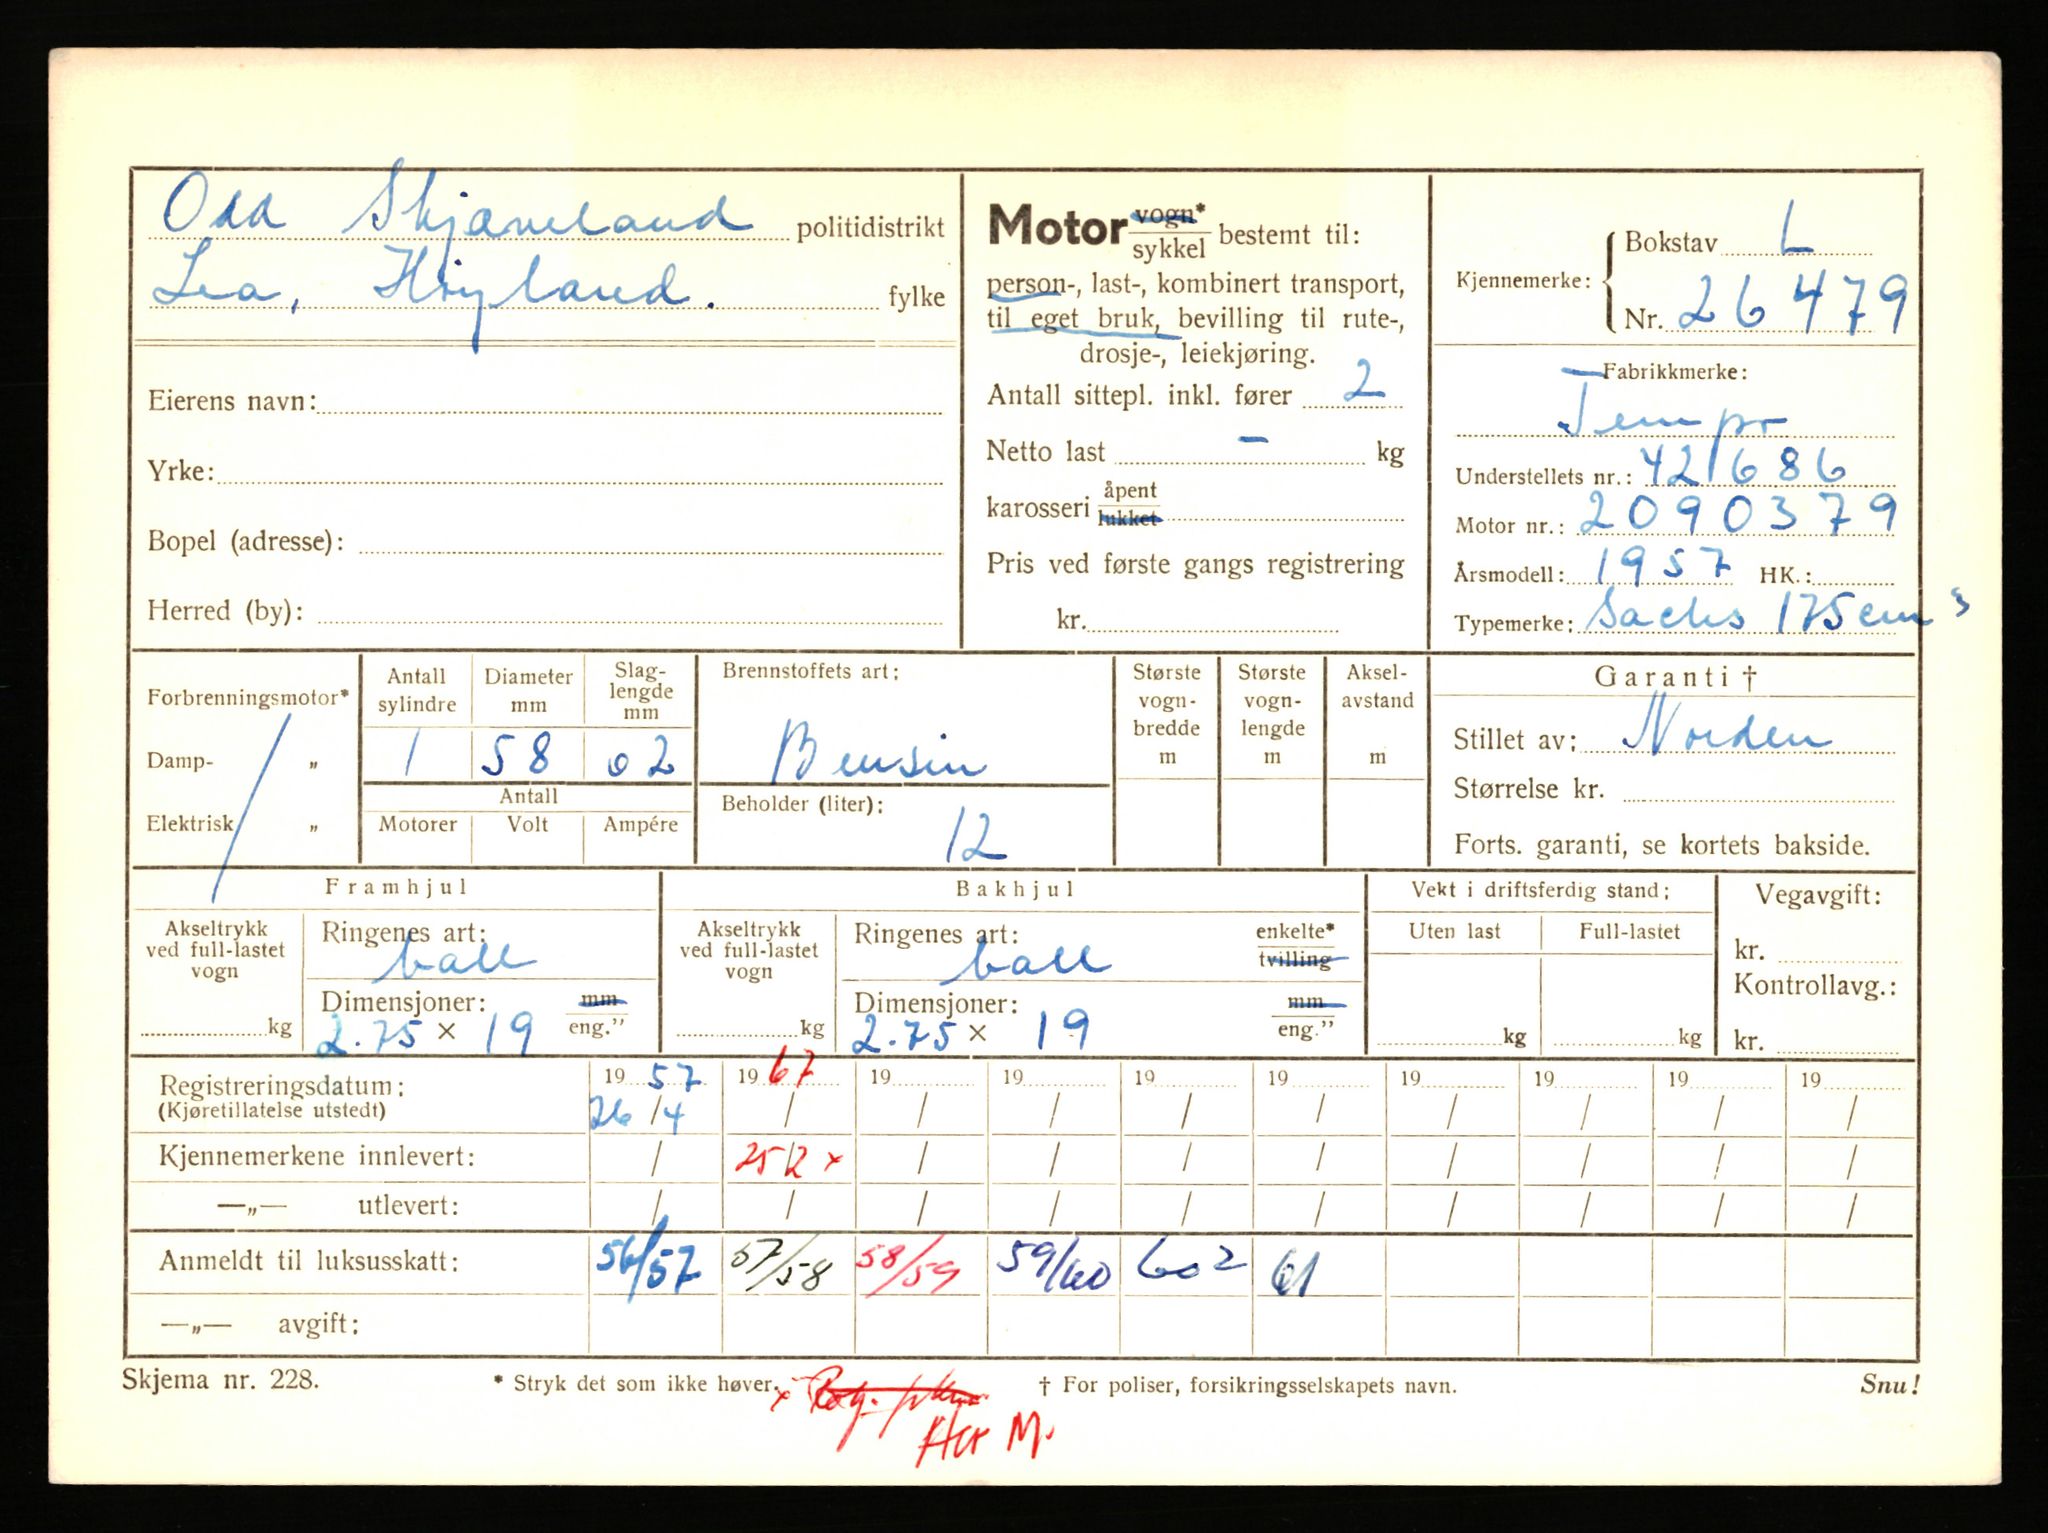 Odd Skjæveland politidistrikt
Lea, Høyland. fylke
Eierens navn:
Yrke:
Bopel (adresse):
Herred (by):
Motor vogn* / sykkel bestemt til:
person-, last-, kombinert transport,
til eget bruk, bevilling til rute-,
drosje-, leiekjøring.
Antall sittepl. inkl. fører 2
Netto last – kg
karosseri åpent / lukket
Pris ved første gangs registrering
kr.
Kjennemerke: Bokstav L
Nr. 26479
Fabrikkmerke:
Tempo
Understellets nr.: 421686
Motor nr.: 2090379
Årsmodell: 1957 HK.:
Typemerke: Sachs 175 cm3
Forbrenningsmotor*
Damp- „
Elektrisk „
Antall sylindre Diameter mm Slag-lengde mm
1 58 62
Antall
Motorer Volt Ampére
Brennstoffets art:
Bensin
Beholder (liter):
12
Største vogn-bredde m
Største vogn-lengde m
Aksel-avstand m
Garanti †
Stillet av: Norden
Størrelse kr.
Forts. garanti, se kortets bakside.
Framhjul
Akseltrykk ved full-lastet vogn
kg
Ringenes art:
ball
Dimensjoner: mm / eng."
2.75 × 19
Bakhjul
Akseltrykk ved full-lastet vogn
kg
Ringenes art: enkelte* / tvilling
ball
Dimensjoner: mm / eng."
2.75 × 19
Vekt i driftsferdig stand:
Uten last Full-lastet
kg kg
Vegavgift:
kr.
Kontrollavg.:
kr.
Registreringsdatum: 19 57 19 67 19 19 19 19 19 19 19 19
(Kjøretillatelse utstedt) 26/4 / / / / / / / / /
Kjennemerkene innlevert: / 25/2 × / / / / / / / /
—„— utlevert: / / / / / / / / / /
Anmeldt til luksusskatt: 56/57 57/58 58/59 59/60 602 61
—„— avgift:
Skjema nr. 228. * Stryk det som ikke høver. † For poliser, forsikringsselskapets navn. Snu!
×
M.